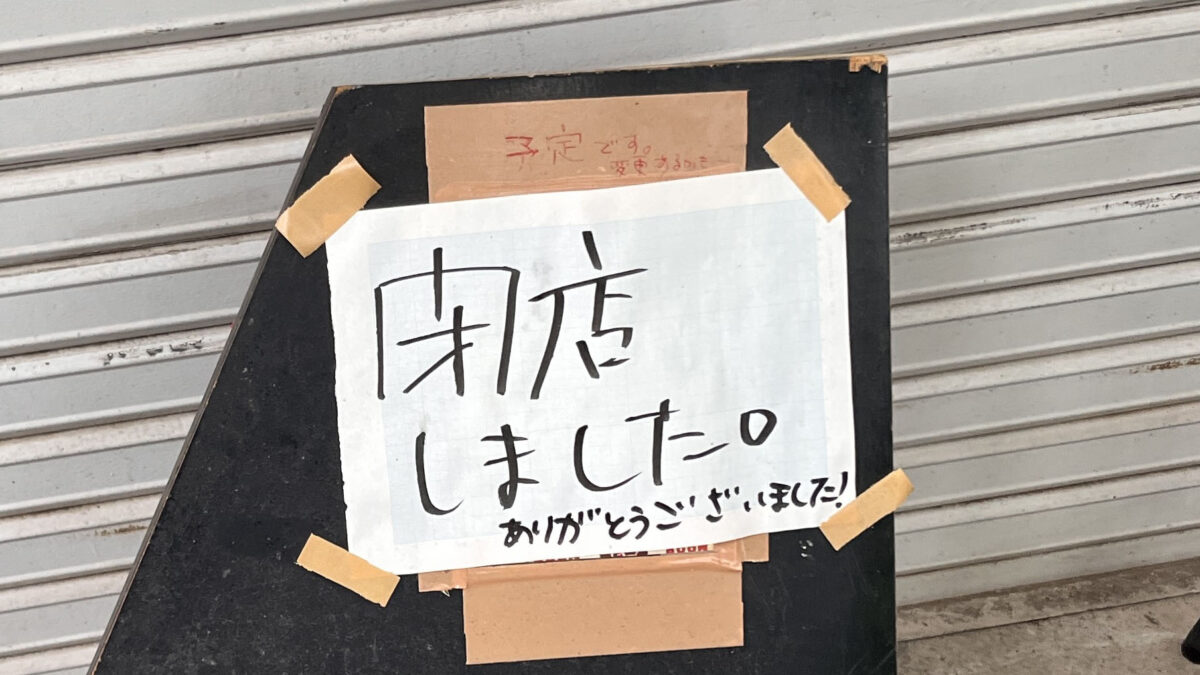 予定です。
変更あるかも
閉店
しました。
ありがとうございました!